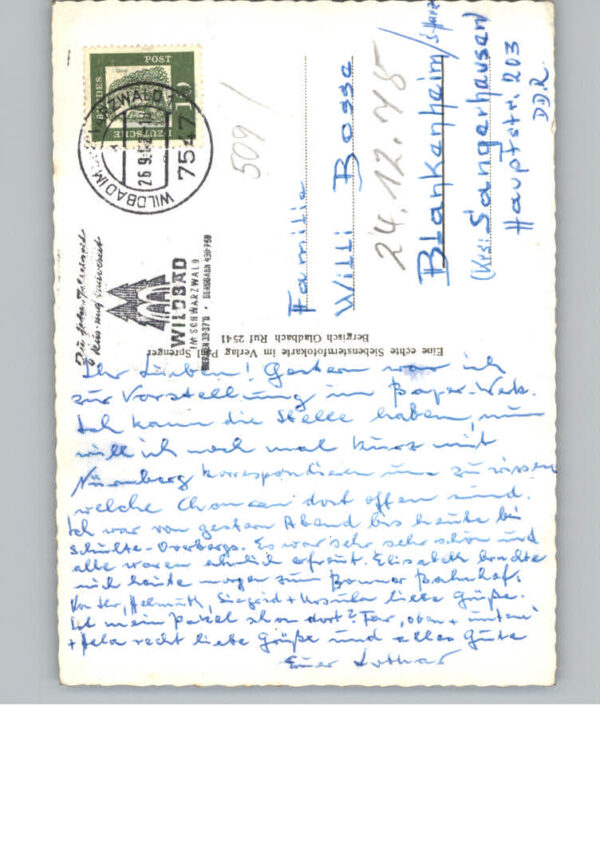 DEUTSCHE BUNDESPOST
10
WILDBAD IM SCHWARZWALD
26.9.
7547
WILDBAD
IM SCHWARZWALD
BERGBAHN 430-750
509/
24.12.75
Familie
Willi Bosse
Blankenheim/
(Krs. Sangerhausen)
Hauptstr. 203
DDR.
Eine echte Siebensternfotokarte im Verlag Sprenger
Bergisch Gladbach Ruf 2541
Ihr Lieben! Gestern war ich
zur Vorstellung im Bayer-Werk.
Ich kann die Stelle haben, nun
will ich noch mal kurz mit
Nürnberg korrespondieren um zu wissen
welche Chancen dort offen sind.
Ich war von gestern Abend bis heute bei
Schulte-Overbergs. Es war sehr sehr schön und
alle waren ehrlich erfreut. Elisabeth brachte
mich heute morgen zum Bonner Bahnhof.
Von ihr, Helmuth, Siegrid + Ursula liebe Grüße.
Ist mein Paket schon dort? Für, oben + unten
+ Hela recht liebe Grüße und alles Gute
Euer Lothar